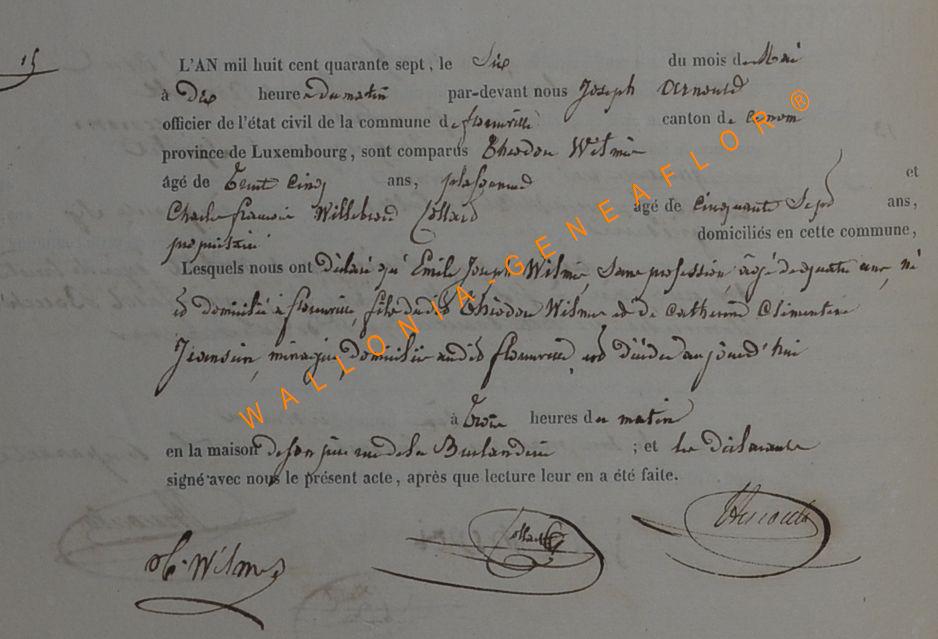 15
L'AN mil huit cent quarante sept, le Six du mois de Mai
à Dix heures du matin par-devant nous Joseph Arnould
officier de l'état civil de la commune de florenville canton de
province de Luxembourg, sont comparus Théodore Wilmes
âgé de Trente Cinq ans, plafonneur et
Charles françois Willebrord Collard âgé de Cinquante Sept ans,
propriétaire domiciliés en cette commune,
Lesquels nous ont Déclaré qu'Emile Joseph Wilmes, Sans profession, âgé de quatre ans, né
et domicilié à florenville, fils dudit Théodore Wilmes et de Catherine Clémentine
ménagère, domiciliée audit florenville, est décédé aujourd'hui
à Trois heures du matin
en la maison de son père rue de la ; et les déclarants
signé avec nous le présent acte, après que lecture leur en a été faite.
Th. Wilmes Collard Arnould
WALLONIA-GENEAFLOR ®